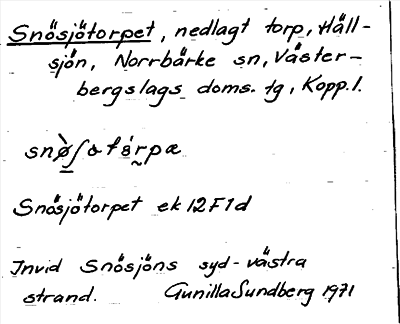 Snösjötorpet, nedlagt torp, Häll-
sjön, Norrbärke sn, Väster-
bergslags doms. tg, Kopp. l.
Snösjötorpet ek 12F1d
Invid Snösjöns syd-västra
strand. Gunilla Sundberg 1971